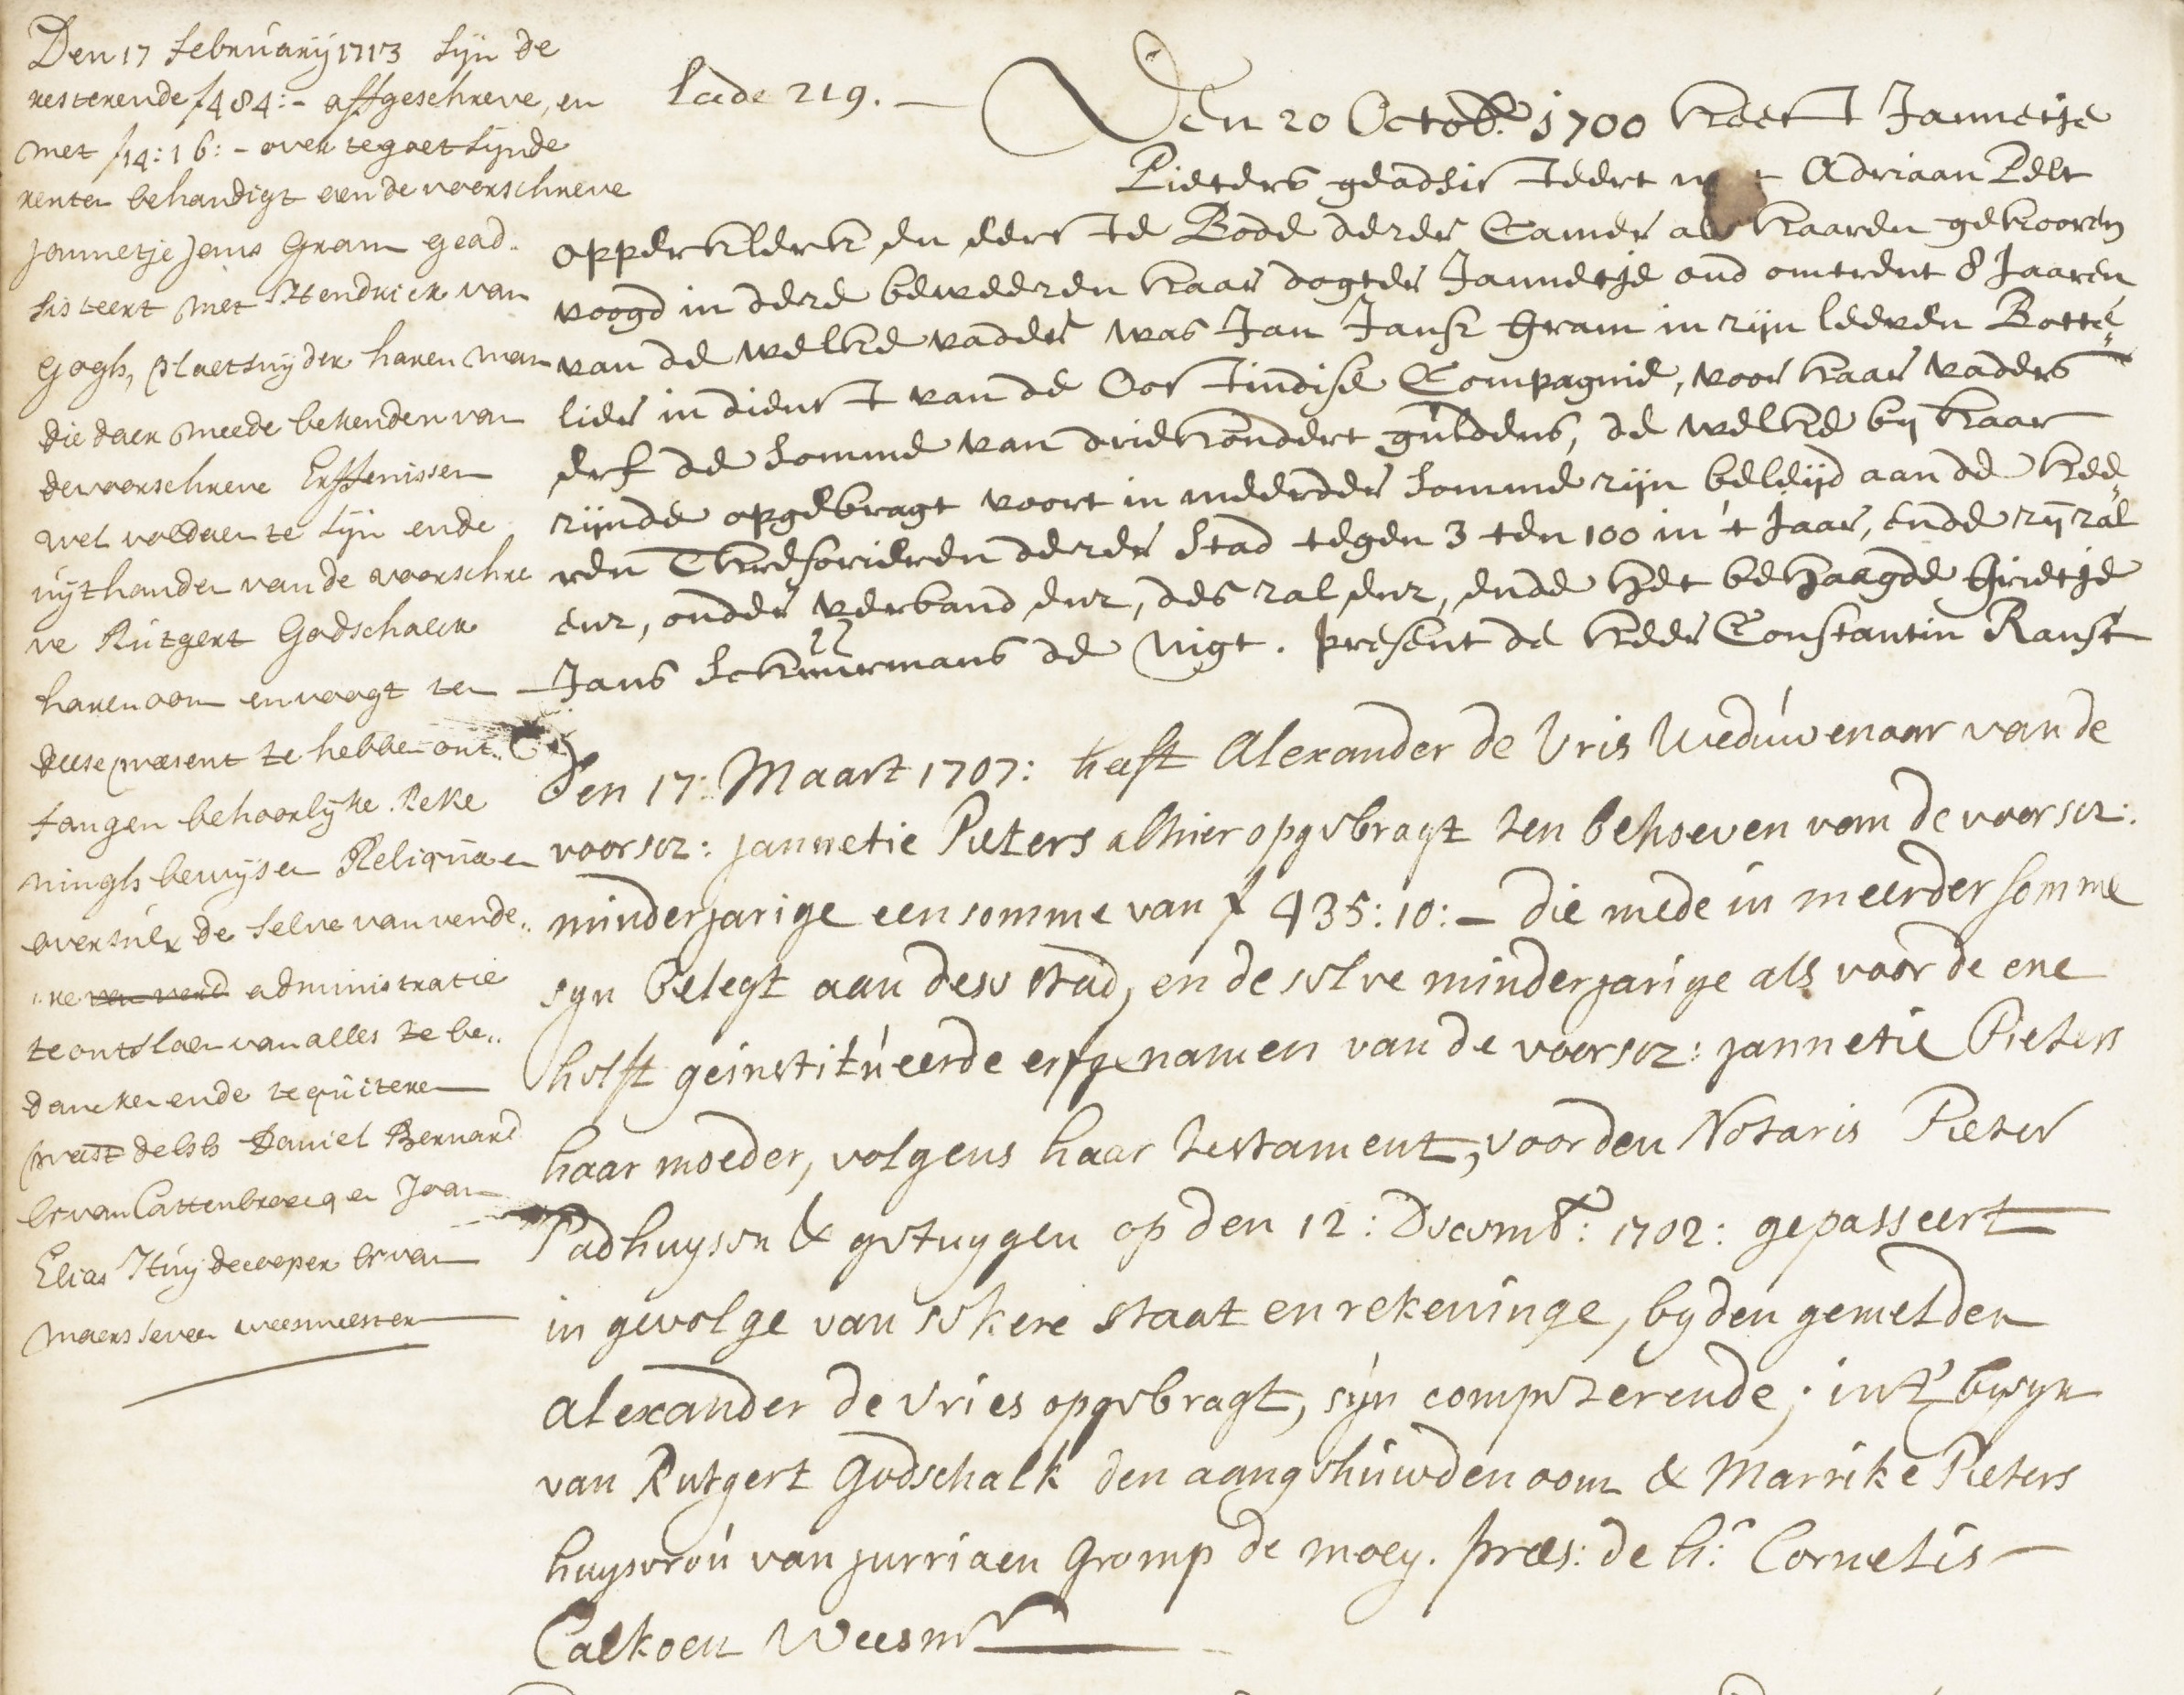 Den 17 februarij 1713 sijn de
resterende f 484:- affgeschreve, en
met f 14:16:- over tegoet sijnde
renten behandigt aen de voorschreve
Jannetje Jans Gram gead..
sisteert met Hendrick van
Gogh, plaetsnijder haren man
die daer meede bekenden van
de voorschreve Erffenissen
wel voldaen te sijn ende
uijt handen van de voorschre
ve Rutgert Godschalck
haren oom en voogt ten
deese present te hebben ont..
fangen behoorlijke Reke
ninghs bewijs en Reliqua en
oversulx de selve van verde..
..re van verd administratie
te ontslaen van alles te be..
dancken ende te quiteren
prest de hrs Daniel Bernard
hr van Cattenbroecq en Joan
Elias Huijdecooper hr van
Maersseveen weesmeesteren
Lade 219. —
Den 20 Octobr. 1700 heeft Jannetje
Pieters geadsisteert met Adriaan Pelt
opperklerk en eerste Bode deser Camer als haaren gekooren
voogd in dese bewesen haar dogter Jannetje oud omtrent 8 Jaaren
van de welke vader was Jan Jansz Gram in zijn leeven Botte„
lier in dienst van de Oostindise Compagnie, voor haar vaders
erf de somme van driehondert guldens, de welke by haar
zijnde opgebragt voort in meerder somme zijn beleijd aan de hee„
ren Thresorieren deser stad tegen 3 ten 100 in 't Jaar, ende zij zal
enz, onder verband enz, des zal enz, ende het behaagde Grietje
Jans Schuurmans de Nigt. present de heer Constantin Ranst
Den 17: Maart 1707: heeft Alexander de Vris Weduwenaar van de
voorscr: jannetie Pieters alhier opgebragt ten behoeven van de voorscr:
minderjarige een somme van f 435:10:— die mede in meerder somme
syn belegt aan dese stad, en de selve minderjarige als voor de ene
helft geinstitueerde erfgenamen van de voorscr: jannetie Pieters
haar moeder, volgens haar testament, voor den Notaris Pieter
Padhuysen & getuygen op den 12: Decembr: 1702: gepasseert
in gevolge van sekere staat en rekeninge, by den gemelden
alexander de Vries opgebragt, sijn competerende; in 't bywyn
van Rutgert Godschalk den aangehuwden oom & Marrike Pieters
huysvrou van jurriaen Gromp de moey. præs: de hr. Cornelis
Calkoen Weesmr